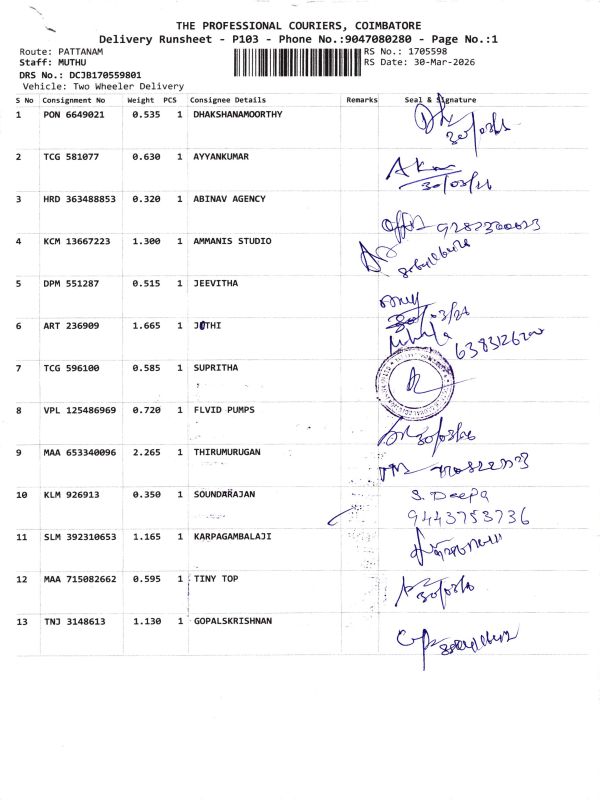 THE PROFESSIONAL COURIERS, COIMBATORE
Delivery Runsheet - P103 - Phone No.:9047080280 - Page No.:1
Route: PATTANAM RS No.: 1705598
Staff: MUTHU RS Date: 30-Mar-2026
DRS No.: DCJB170559801
Vehicle: Two Wheeler Delivery
S No Consignment No Weight PCS Consignee Details Remarks Seal & Signature
1 PON 6649021 0.535 1 DHAKSHANAMOORTHY
2 TCG 581077 0.630 1 AYYANKUMAR
30/03/26
3 HRD 363488853 0.320 1 ABINAV AGENCY
4 KCM 13667223 1.300 1 AMMANIS STUDIO
5 DPM 551287 0.515 1 JEEVITHA
6 ART 236909 1.665 1 JOTHI
7 TCG 596100 0.585 1 SUPRITHA
8 VPL 125486969 0.720 1 FLVID PUMPS
30/03/26
9 MAA 653340096 2.265 1 THIRUMURUGAN
10 KLM 926913 0.350 1 SOUNDARAJAN S. Deepa
9443753736
11 SLM 392310653 1.165 1 KARPAGAMBALAJI
12 MAA 715082662 0.595 1 TINY TOP
13 TNJ 3148613 1.130 1 GOPALSKRISHNAN